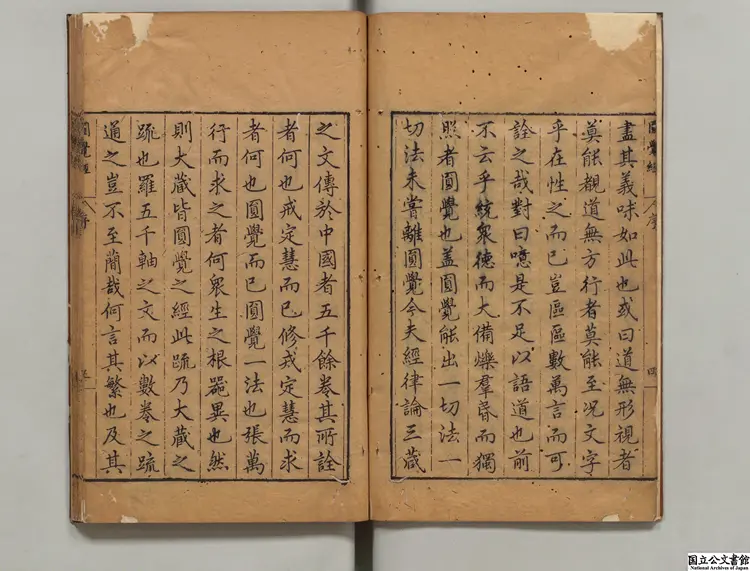 盡其義味如此也或曰道無形視者
莫能覩道無方行者莫能至况文字
乎在性之而已豈區區數萬言而可
詮之哉對曰噫是不足以語道也前
不云乎統衆德而大備爍羣昏而獨
照者圓覺也盖圓覺能出一切法一
切法未嘗離圓覺今夫經律論三蔵
之文傳於中國者五千餘卷其所詮
者何也戒定慧而已修戒定慧而求
者何也圓覺而已圓覺一法也張萬
行而求之者何衆生之根器異也然
則大蔵皆圓覺之經此䟽乃大蔵之
䟽也羅五千軸之文而以數卷之䟽
通之豈不至簡哉何言其繁也及其
圓覺經
序
四
圓覺經
序
五
国立公文書館
National Archives of Japan